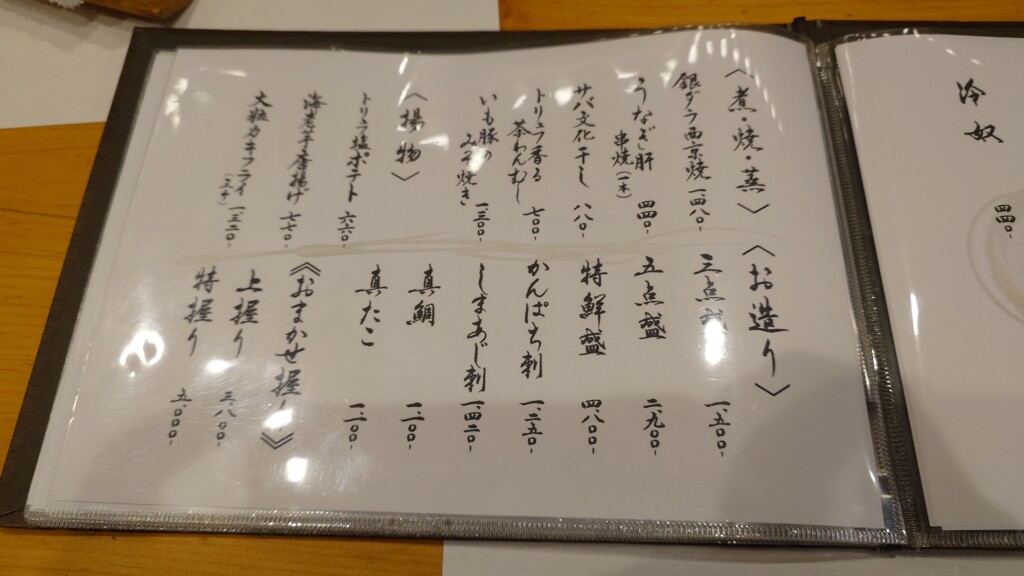 冷奴
四四〇-
〈煮・焼・蒸〉
銀ダラ西京焼 一、四八〇-
うなぎ肝
串焼(一本) 四四〇-
サバ文化干し 八八〇-
トリュフ香る
茶わんむし 七〇〇-
いも豚の
みそ焼き 一、三〇〇-
〈揚物〉
トリュフ塩ポテト 六六〇-
海老芋唐揚げ 七七〇-
大粒カキフライ(三ヶ) 一、三二〇-
〈お造り〉
三点盛 一、五〇〇-
五点盛 二、九〇〇-
特鮮盛 四、八〇〇-
かんぱち刺 一、二五〇-
しまあじ刺 一、四二〇-
真鯛 一、一〇〇-
真たこ 一、一〇〇-
《おまかせ握り》
上握り 三、八〇〇-
特握り 五、〇〇〇-